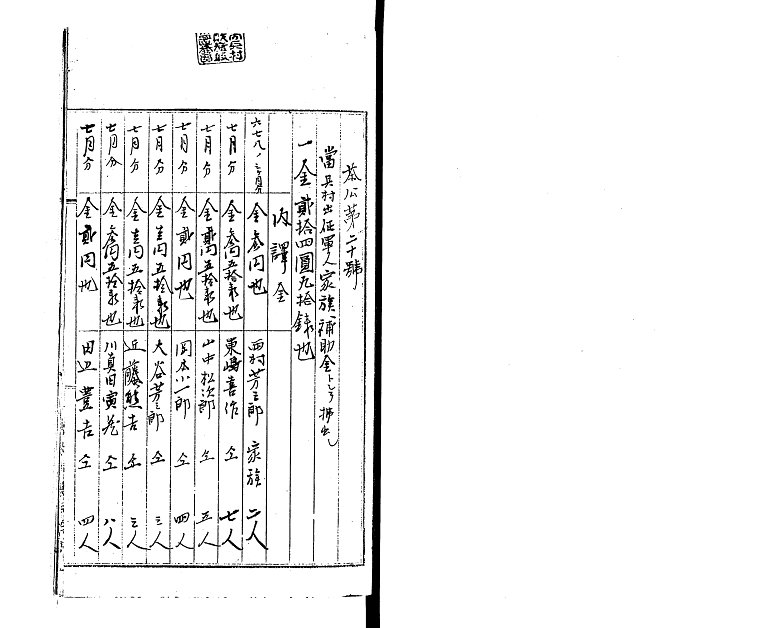 第二十號
當呉村出征軍人家族補助金トシテ拂出シ
一金貳拾四圓九拾錢也
内譯 金
六七八ノ三ヶ月分 金参円也 西村芳三郎 家族 二人
七月分 金参円五拾銭也 東嶋喜作 仝 七人
七月分 金貳円五拾銭也 山中松次郎 仝 五人
七月分 金貳円也 岡本小一郎 仝 四人
七月分 金壱円五拾銭也 大谷芳三郎 仝 三人
七月分 金壱円五拾銭也 近藤熊吉 仝 三人
七月分 金参円五拾銭也 川真田寅 仝 八人
七月分 金貳円也 田辺豊吉 仝 四人